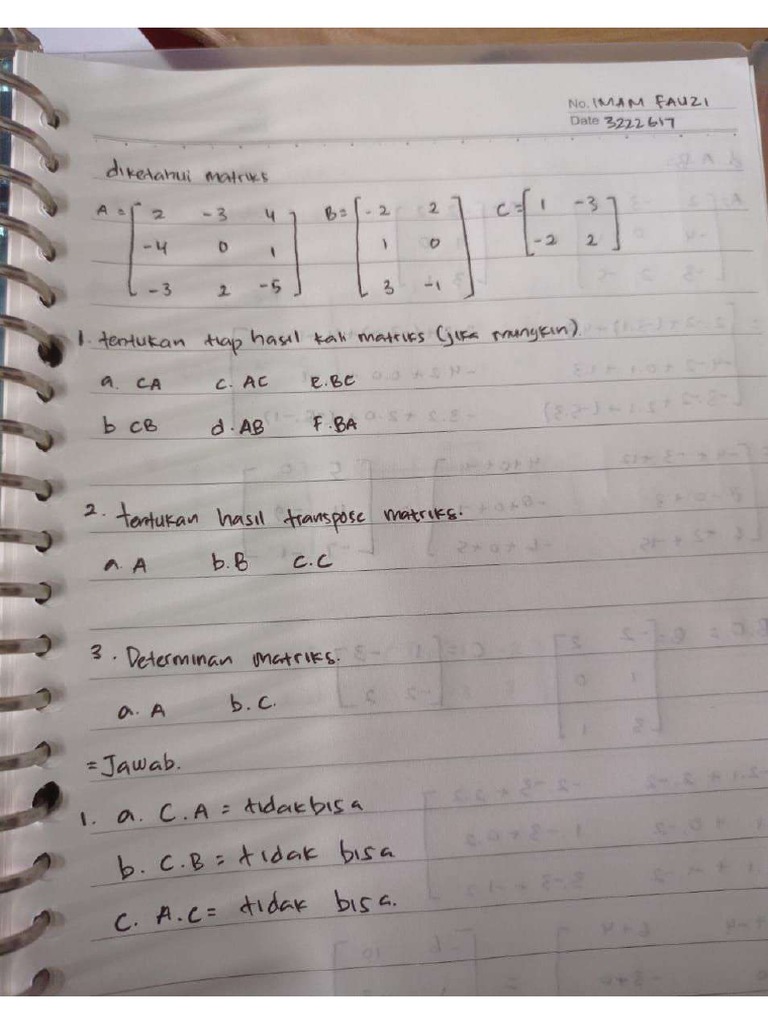 No. IMAM FAUZI
Date 3222617
diketahui matriks
A = [ 2 -3 4 B = [ -2 2 C = [ 1 -3
-4 0 1 1 0 -2 2 ]
-3 2 -5 ] 3 -1 ]
1. tentukan tiap hasil kali matriks (jika mungkin).
a. CA c. AC e. BC
b CB d. AB F. BA
2. tentukan hasil transpose matriks.
a. A b. B c. C
3. Determinan matriks.
a. A b. C.
= Jawab.
1. a. C.A = tidak bisa
b. C.B = tidak bisa
C. A.C = tidak bisa.